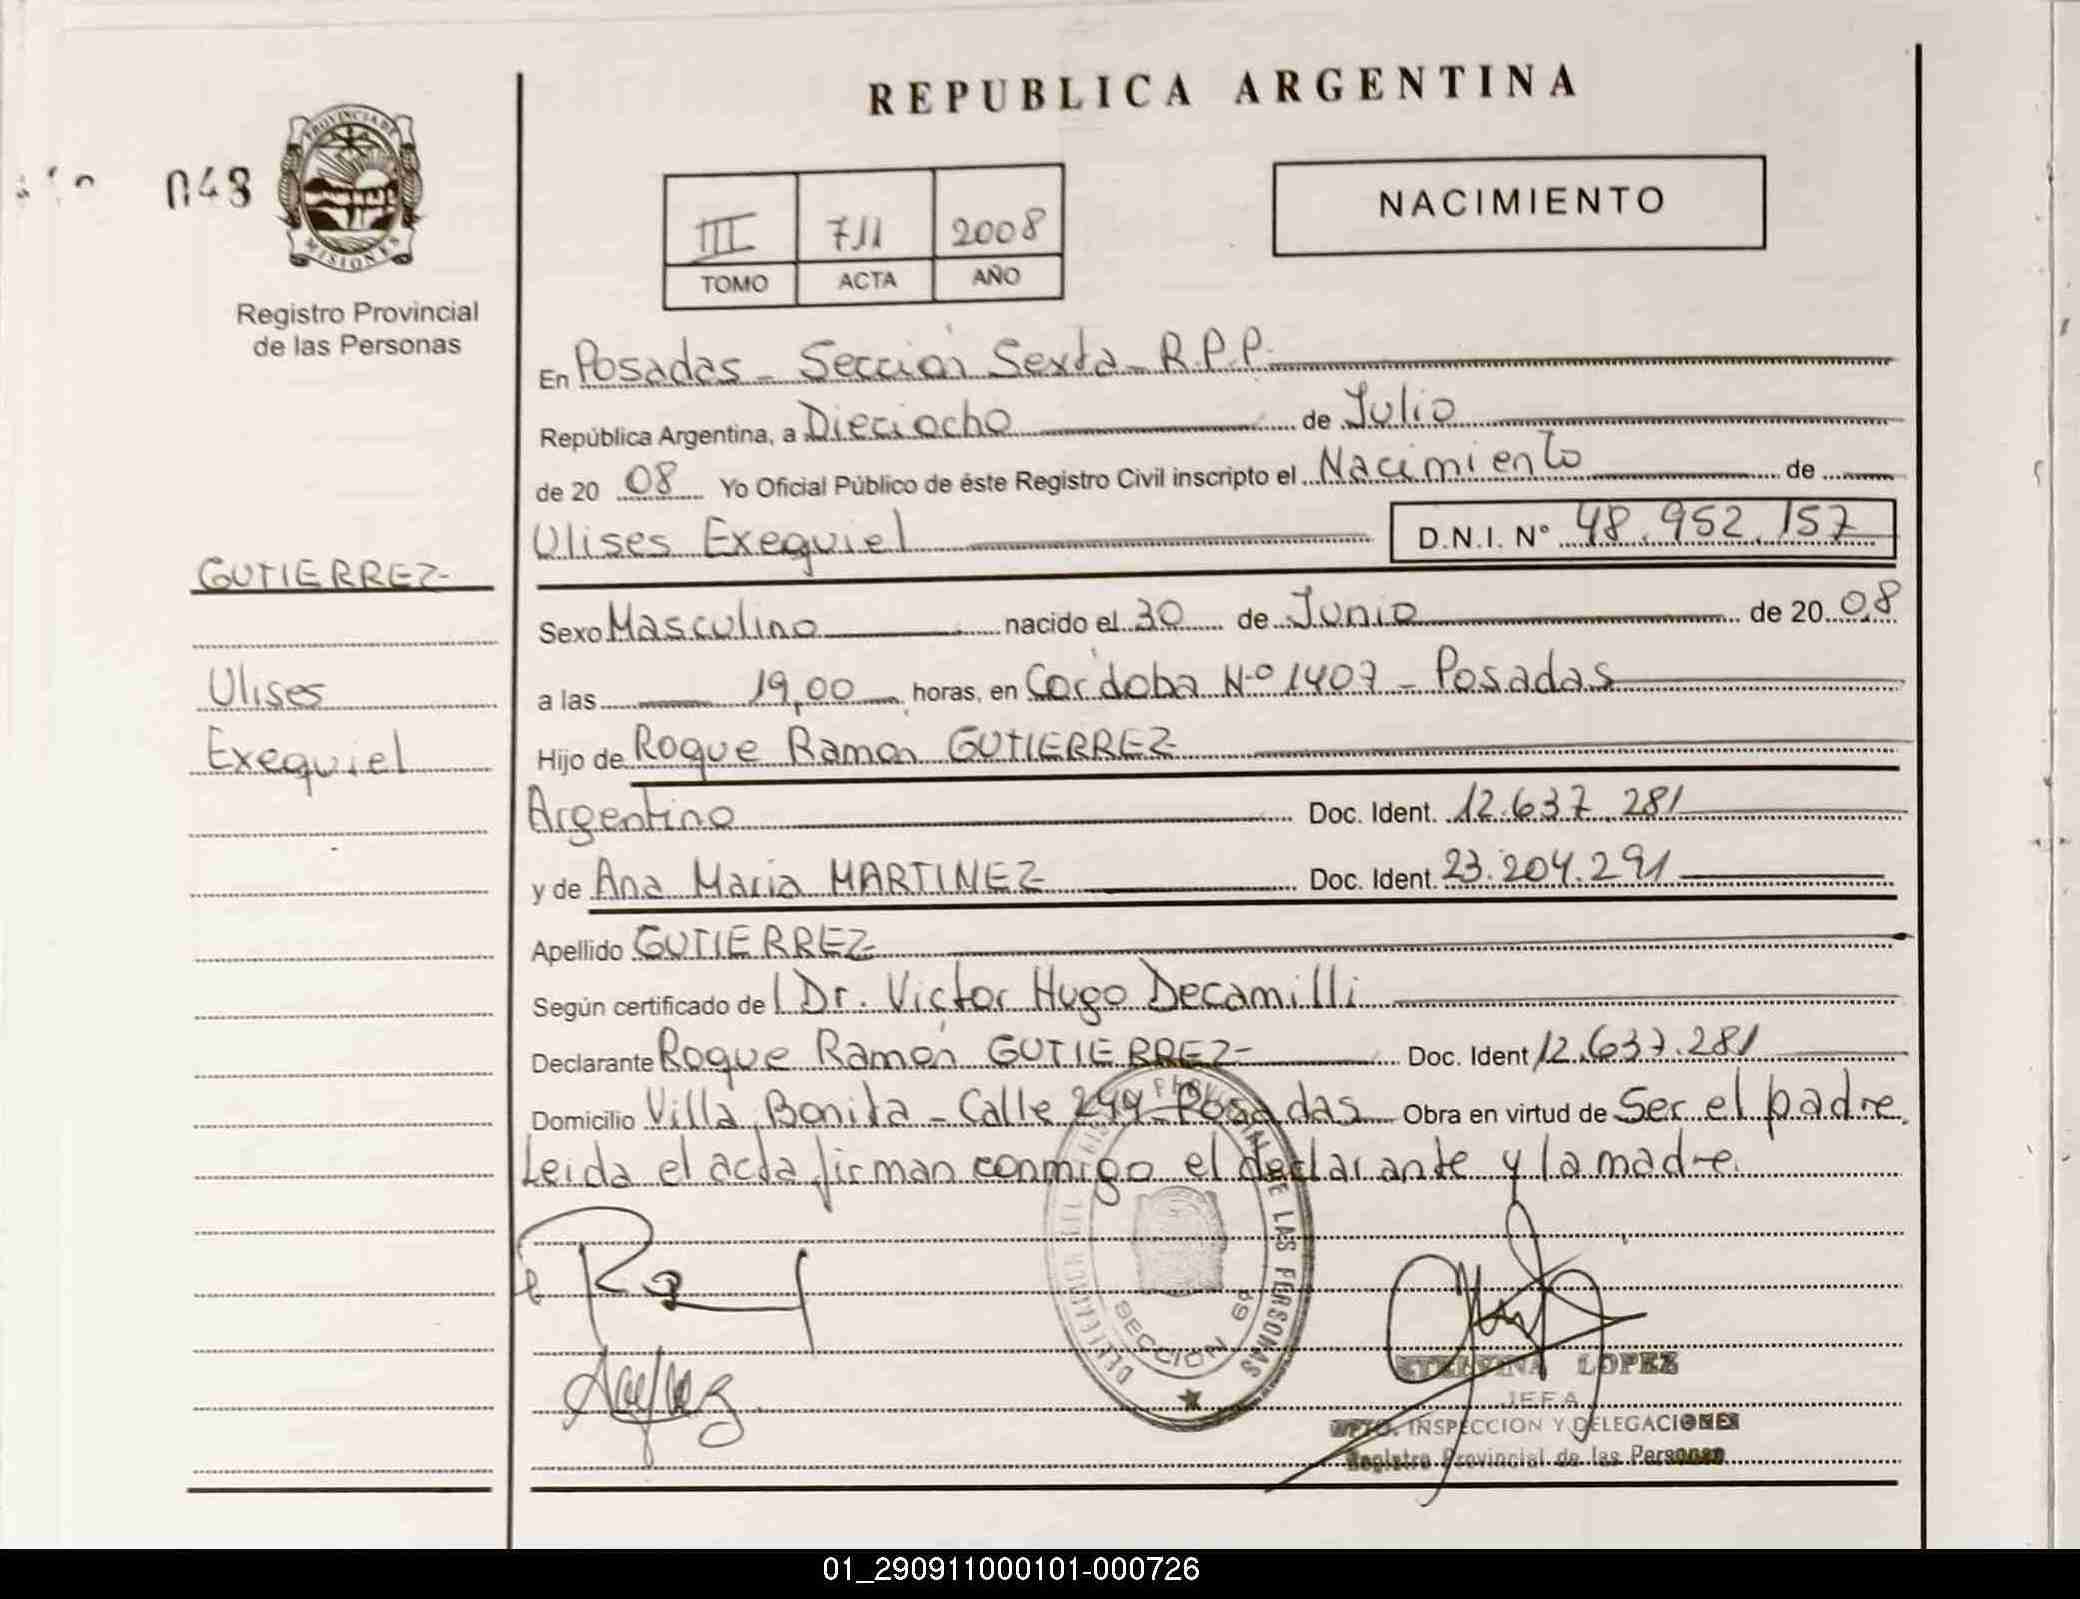 REPUBLICA ARGENTINA
048
PROVINCIA DE
MISIONES
Registro Provincial
de las Personas
III 711 2008
TOMO ACTA AÑO
NACIMIENTO
En Posadas - Sección Sexta - R.P.P.
República Argentina, a Dieciocho de Julio
de 20 08 Yo Oficial Público de éste Registro Civil inscripto el Nacimiento de
Ulises Exequiel D.N.I. N° 48.952.157
GUTIERREZ
Ulises
Exequiel
Sexo Masculino nacido el 30 de Junio de 20 08
a las 19,00 horas, en Córdoba Nº 1407 - Posadas
Hijo de Roque Ramon GUTIERREZ
Argentino Doc. Ident. 12.637.281
y de Ana Maria MARTINEZ Doc. Ident. 23.204.291
Apellido GUTIERREZ
Según certificado de l Dr. Victor Hugo Decamilli
Declarante Roque Ramón GUTIERREZ Doc. Ident 12.637.281
Domicilio Villa Bonita - Calle Posadas Obra en virtud de Ser el padre.
Leida el acta firman conmigo el declarante y la madre.
DE LAS PERSONAS
SECCION 6ª
LOPEZ
JEFA
DPTO. INSPECCION Y DELEGACIONES
Registro Provincial de las Personas
01_290911000101-000726